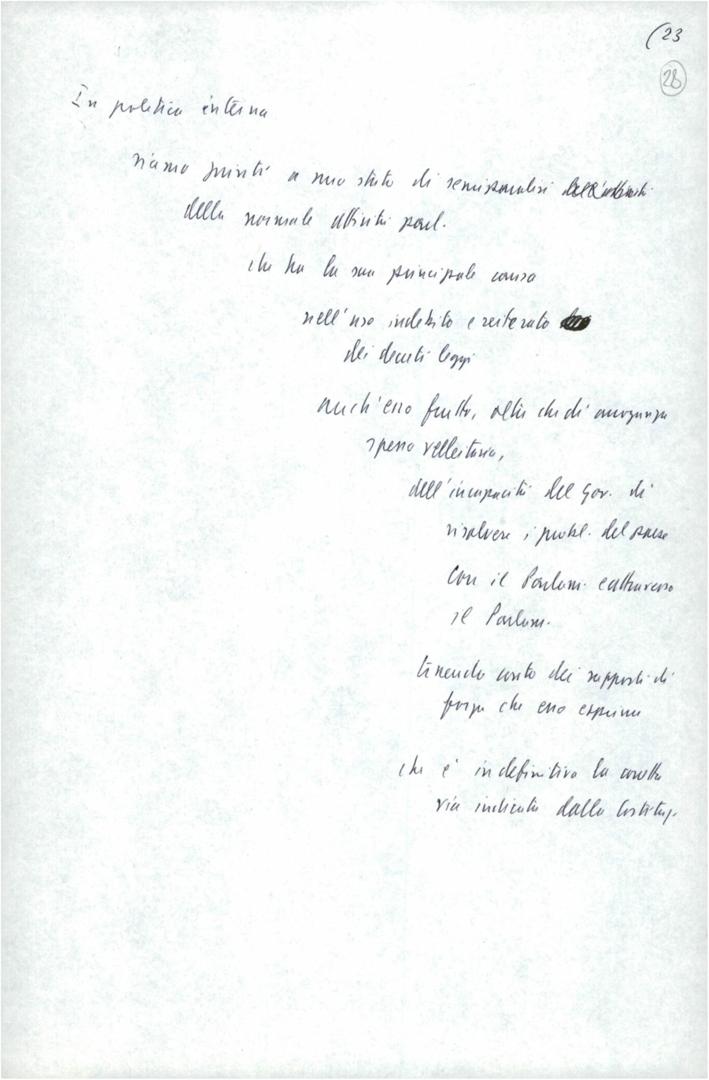 (23
28
In politica interna
siamo giunti a uno stato di semiparalisi dell'attività
della normale attività parl.
che ha la sua principale causa
nell'uso indebito e reiterato
dei decreti leggi
anch'esso frutto, oltre che di arroganza
spesso velleitaria,
dell'incapacità del Gov. di
risolvere i probl. del paese
con il Parlam. e attraverso
il Parlam.
tenendo conto dei rapporti di
forza che esso esprime
che è in definitiva la corretta
via indicata dalla Costituz.